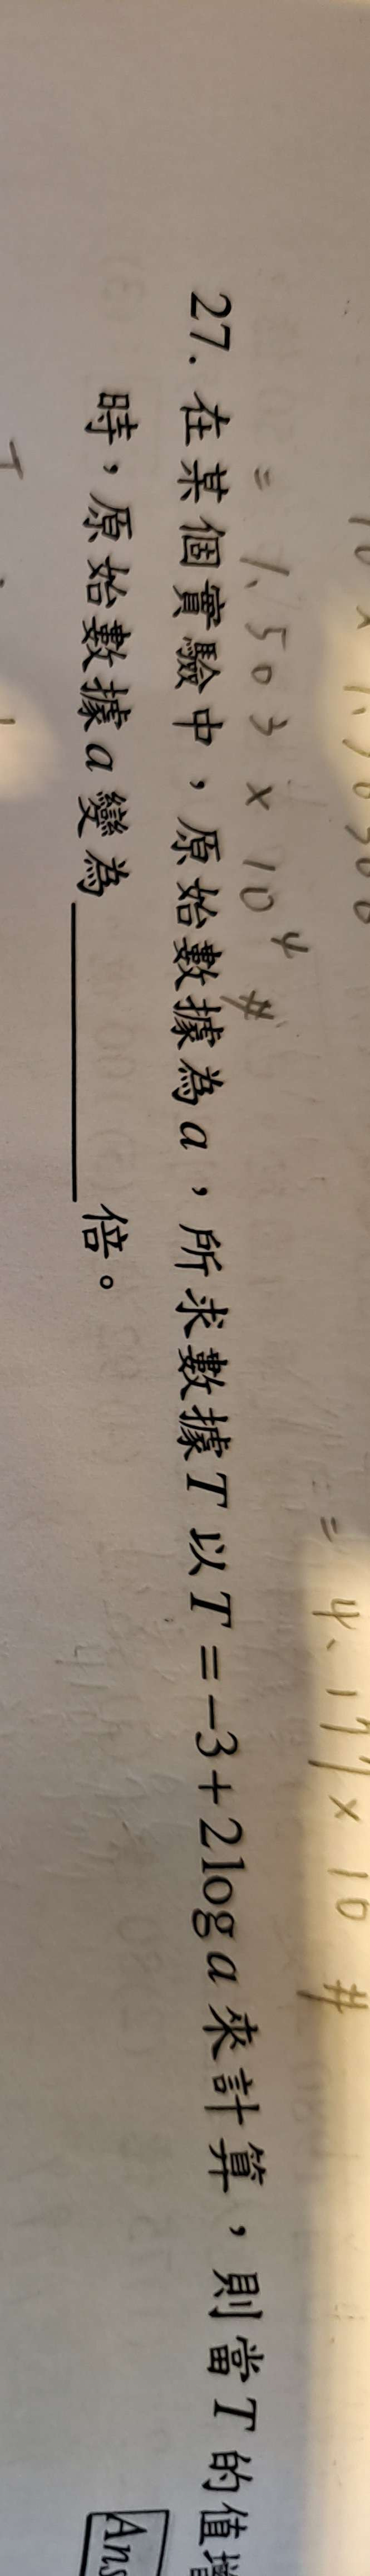 = 1.503 × 10⁴ #
= 4.177 × 10 #
27. 在某個實驗中，原始數據為a，所求數據T以T=−3+2log a來計算，則當T的值增
時，原始數據a變為________倍。
Ans